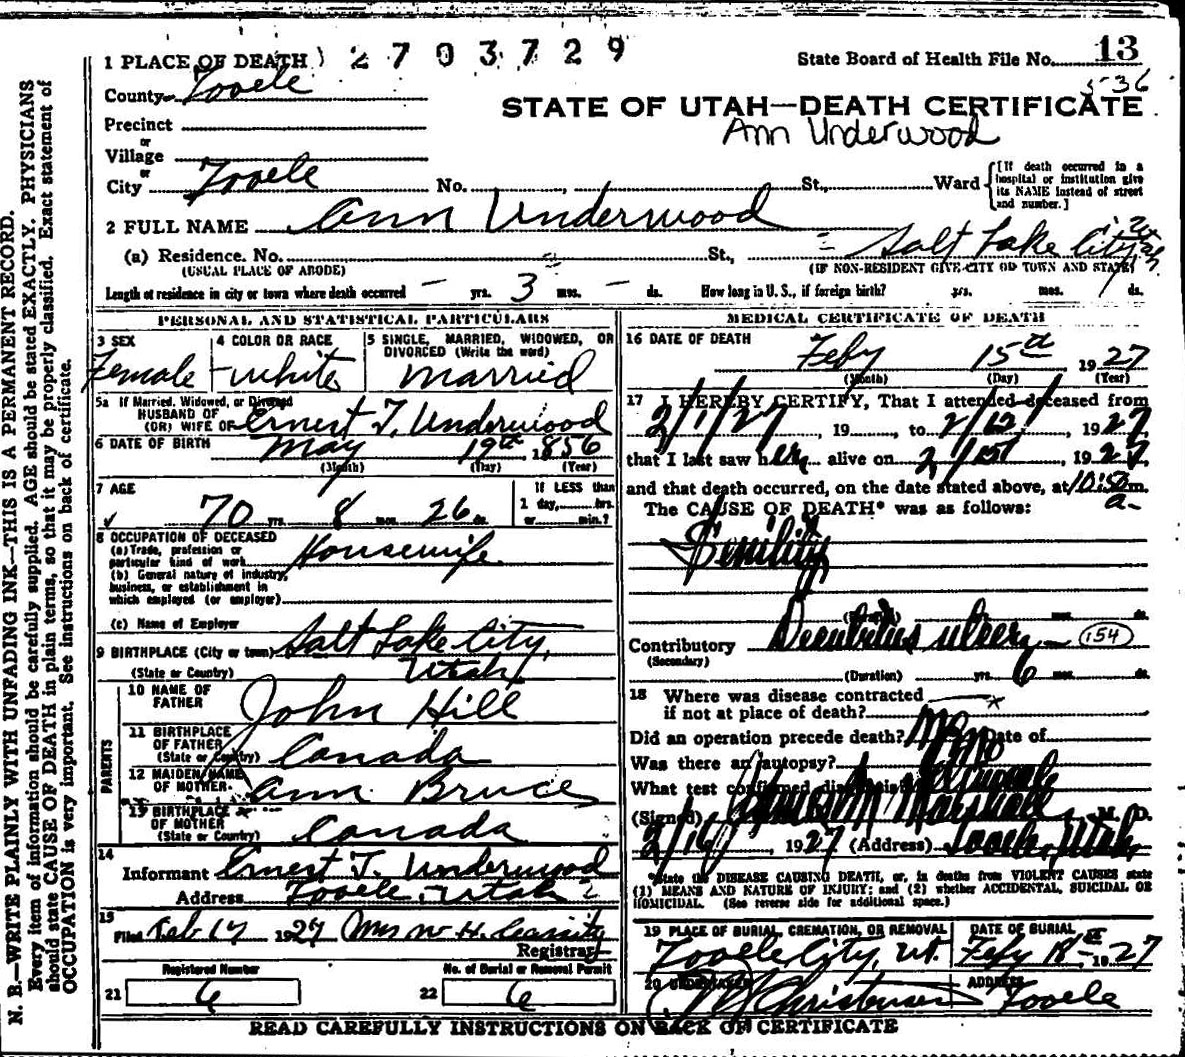 1 PLACE OF DEATH 2703729
State Board of Health File No. 13
536
County Tooele
STATE OF UTAH—DEATH CERTIFICATE
Ann Underwood
Precinct
or
Village
or
City Tooele No. , St., Ward
[If death occurred in a hospital or institution give its NAME instead of street and number.]
2 FULL NAME Ann Underwood
(a) Residence. No. St., Salt Lake City, Utah
(USUAL PLACE OF ABODE) (IF NON-RESIDENT GIVE CITY OR TOWN AND STATE)
Length of residence in city or town where death occurred - yrs. 3 mos. - ds. How long in U. S., if foreign birth? yrs. mos. ds.
PERSONAL AND STATISTICAL PARTICULARS
3 SEX 4 COLOR OR RACE 5 SINGLE, MARRIED, WIDOWED, OR DIVORCED (Write the word)
Female White Married
5a If Married, Widowed, or Divorced
HUSBAND OF
(OR) WIFE OF Ernest T. Underwood
6 DATE OF BIRTH May 19th, 1856
(Month) (Day) (Year)
7 AGE If LESS than
1 day, hrs.
70 yrs. 8 mos. 26 ds. or min.?
8 OCCUPATION OF DECEASED
(a) Trade, profession or
particular kind of work Housewife
(b) General nature of industry,
business, or establishment in
which employed (or employer)
(c) Name of Employer
9 BIRTHPLACE (City or town) Salt Lake City,
(State or Country) Utah
PARENTS
10 NAME OF
FATHER John Hill
11 BIRTHPLACE
OF FATHER
(State or Country) Canada
12 MAIDEN NAME
OF MOTHER Ann Bruce
13 BIRTHPLACE
OF MOTHER
(State or Country) Canada
14
Informant Ernest T. Underwood
Address Tooele, Utah
15
Filed Feb 17 1927 Mrs W. H. Cassity
Registrar
Registered Number No. of Burial or Removal Permit
21 6 22 6
MEDICAL CERTIFICATE OF DEATH
16 DATE OF DEATH
Feby 15th 1927
(Month) (Day) (Year)
17 I HEREBY CERTIFY, That I attended deceased from
2/1/27, 19 , to 2/15/, 1927
that I last saw her alive on 2/15/, 1927
and that death occurred, on the date stated above, at 10:50 m.
a.
The CAUSE OF DEATH* was as follows:
Senility
mos. ds.
Contributory Decubitus ulcers 154
(Secondary)
(Duration) yrs. 6 mos. ds.
18 Where was disease contracted
if not at place of death?
Did an operation precede death? No Date of
Was there an autopsy? No
What test confirmed diagnosis?
(Signed) Marshall, M. D.
2/16/, 1927 (Address) Tooele, Utah
*State the DISEASE CAUSING DEATH, or, in deaths from VIOLENT CAUSES state
(1) MEANS AND NATURE OF INJURY; and (2) whether ACCIDENTAL, SUICIDAL OR
HOMICIDAL. (See reverse side for additional space.)
19 PLACE OF BURIAL, CREMATION, OR REMOVAL DATE OF BURIAL
Tooele City, Ut. Feby 18th 1927
20 UNDERTAKER ADDRESS
Christensen Tooele
READ CAREFULLY INSTRUCTIONS ON BACK OF CERTIFICATE
N. B.—WRITE PLAINLY WITH UNFADING INK—THIS IS A PERMANENT RECORD.
Every item of information should be carefully supplied. AGE should be stated EXACTLY. PHYSICIANS
should state CAUSE OF DEATH in plain terms, so that it may be properly classified. Exact statement of
OCCUPATION is very important. See instructions on back of certificate.